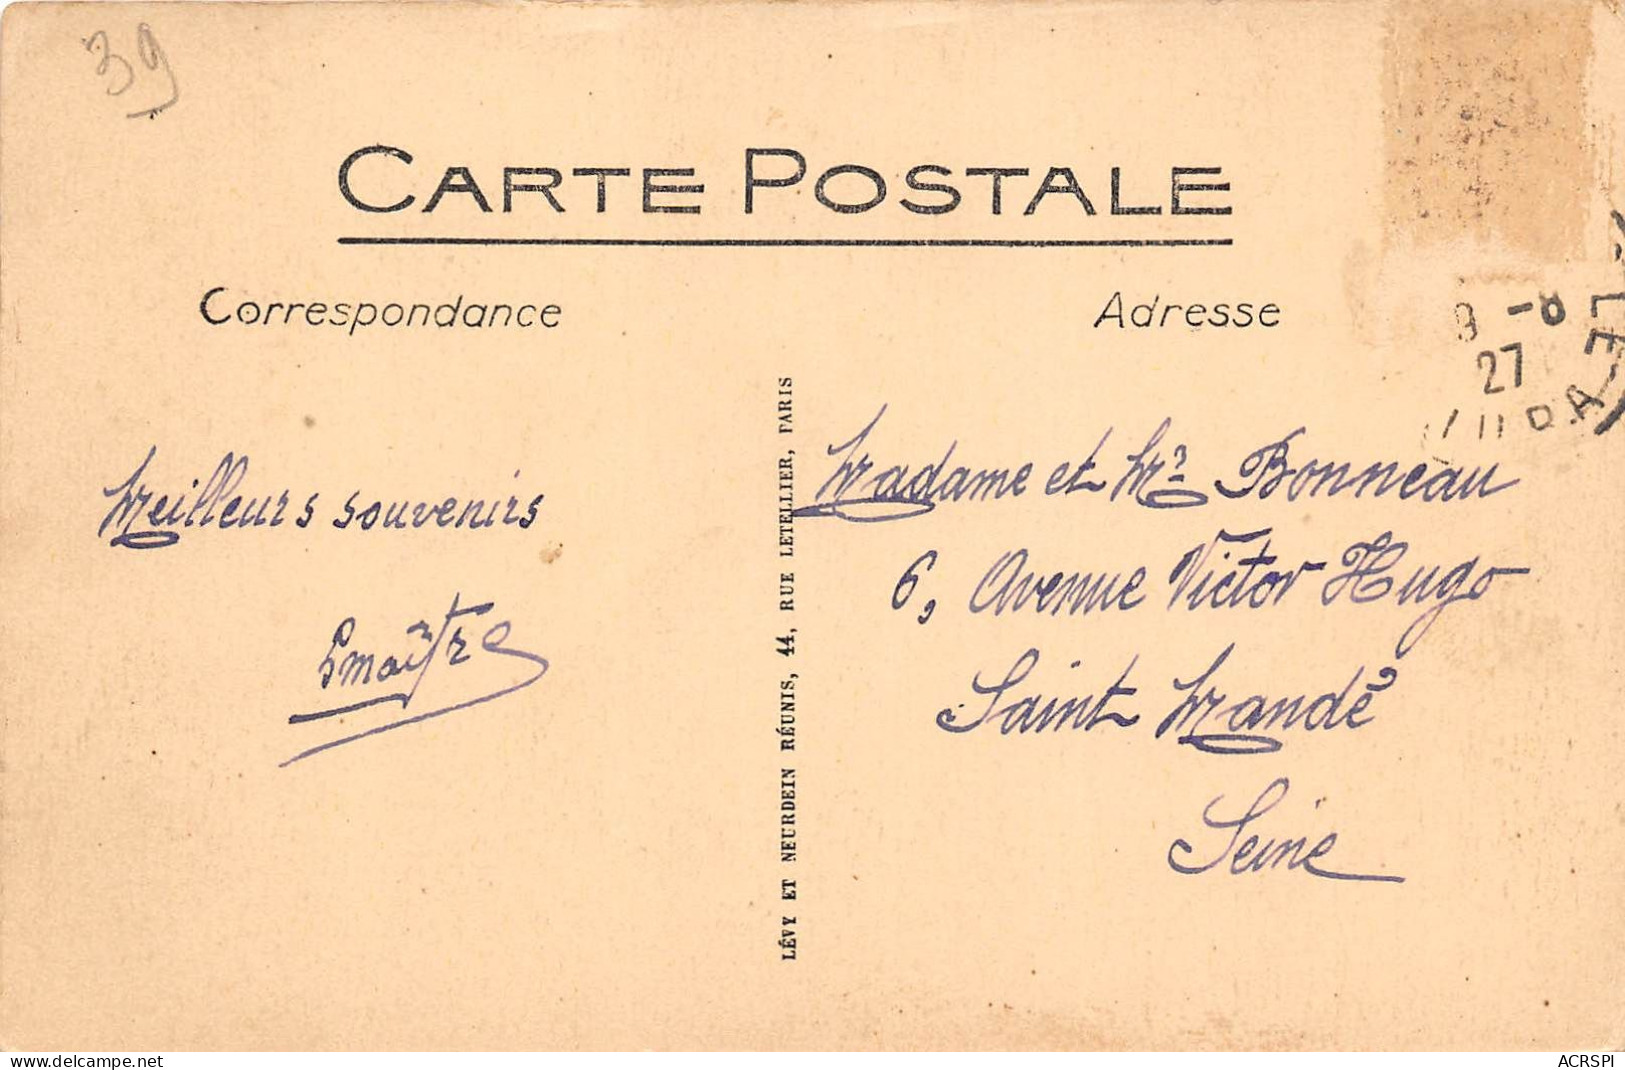 39
CARTE POSTALE
Correspondance
Adresse
9 -8
27
LE
Meilleurs souvenirs
LÉVY ET NEURDEIN RÉUNIS, 44, RUE LETELLIER, PARIS
Madame et Mr Bonneau
6, Avenue Victor Hugo
Saint Mandé
Seine
delcampe.net
ACRSPI